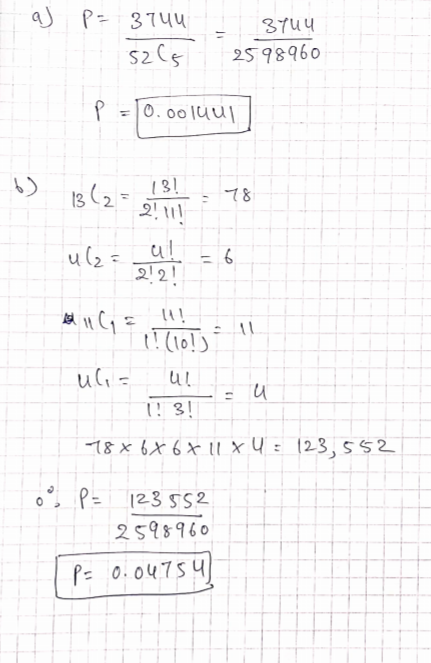 a) P = 3744 / 52C5 = 3744 / 2598960
P = 0.001441
b) 13C2 = 13! / 2! 11! = 78
4C2 = 4! / 2! 2! = 6
11C1 = 11! / 1! (10!) = 11
4C1 = 4! / 1! 3! = 4
78 × 6 × 6 × 11 × 4 = 123,552
∴ P = 123552 / 2598960
P = 0.04754